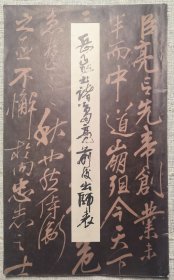 臣亮言先帝創業未
半而中道崩殂今天下
危
岳飛書諸葛亮前後出師表
秋也然侍衛
之臣不懈於內忠志之士